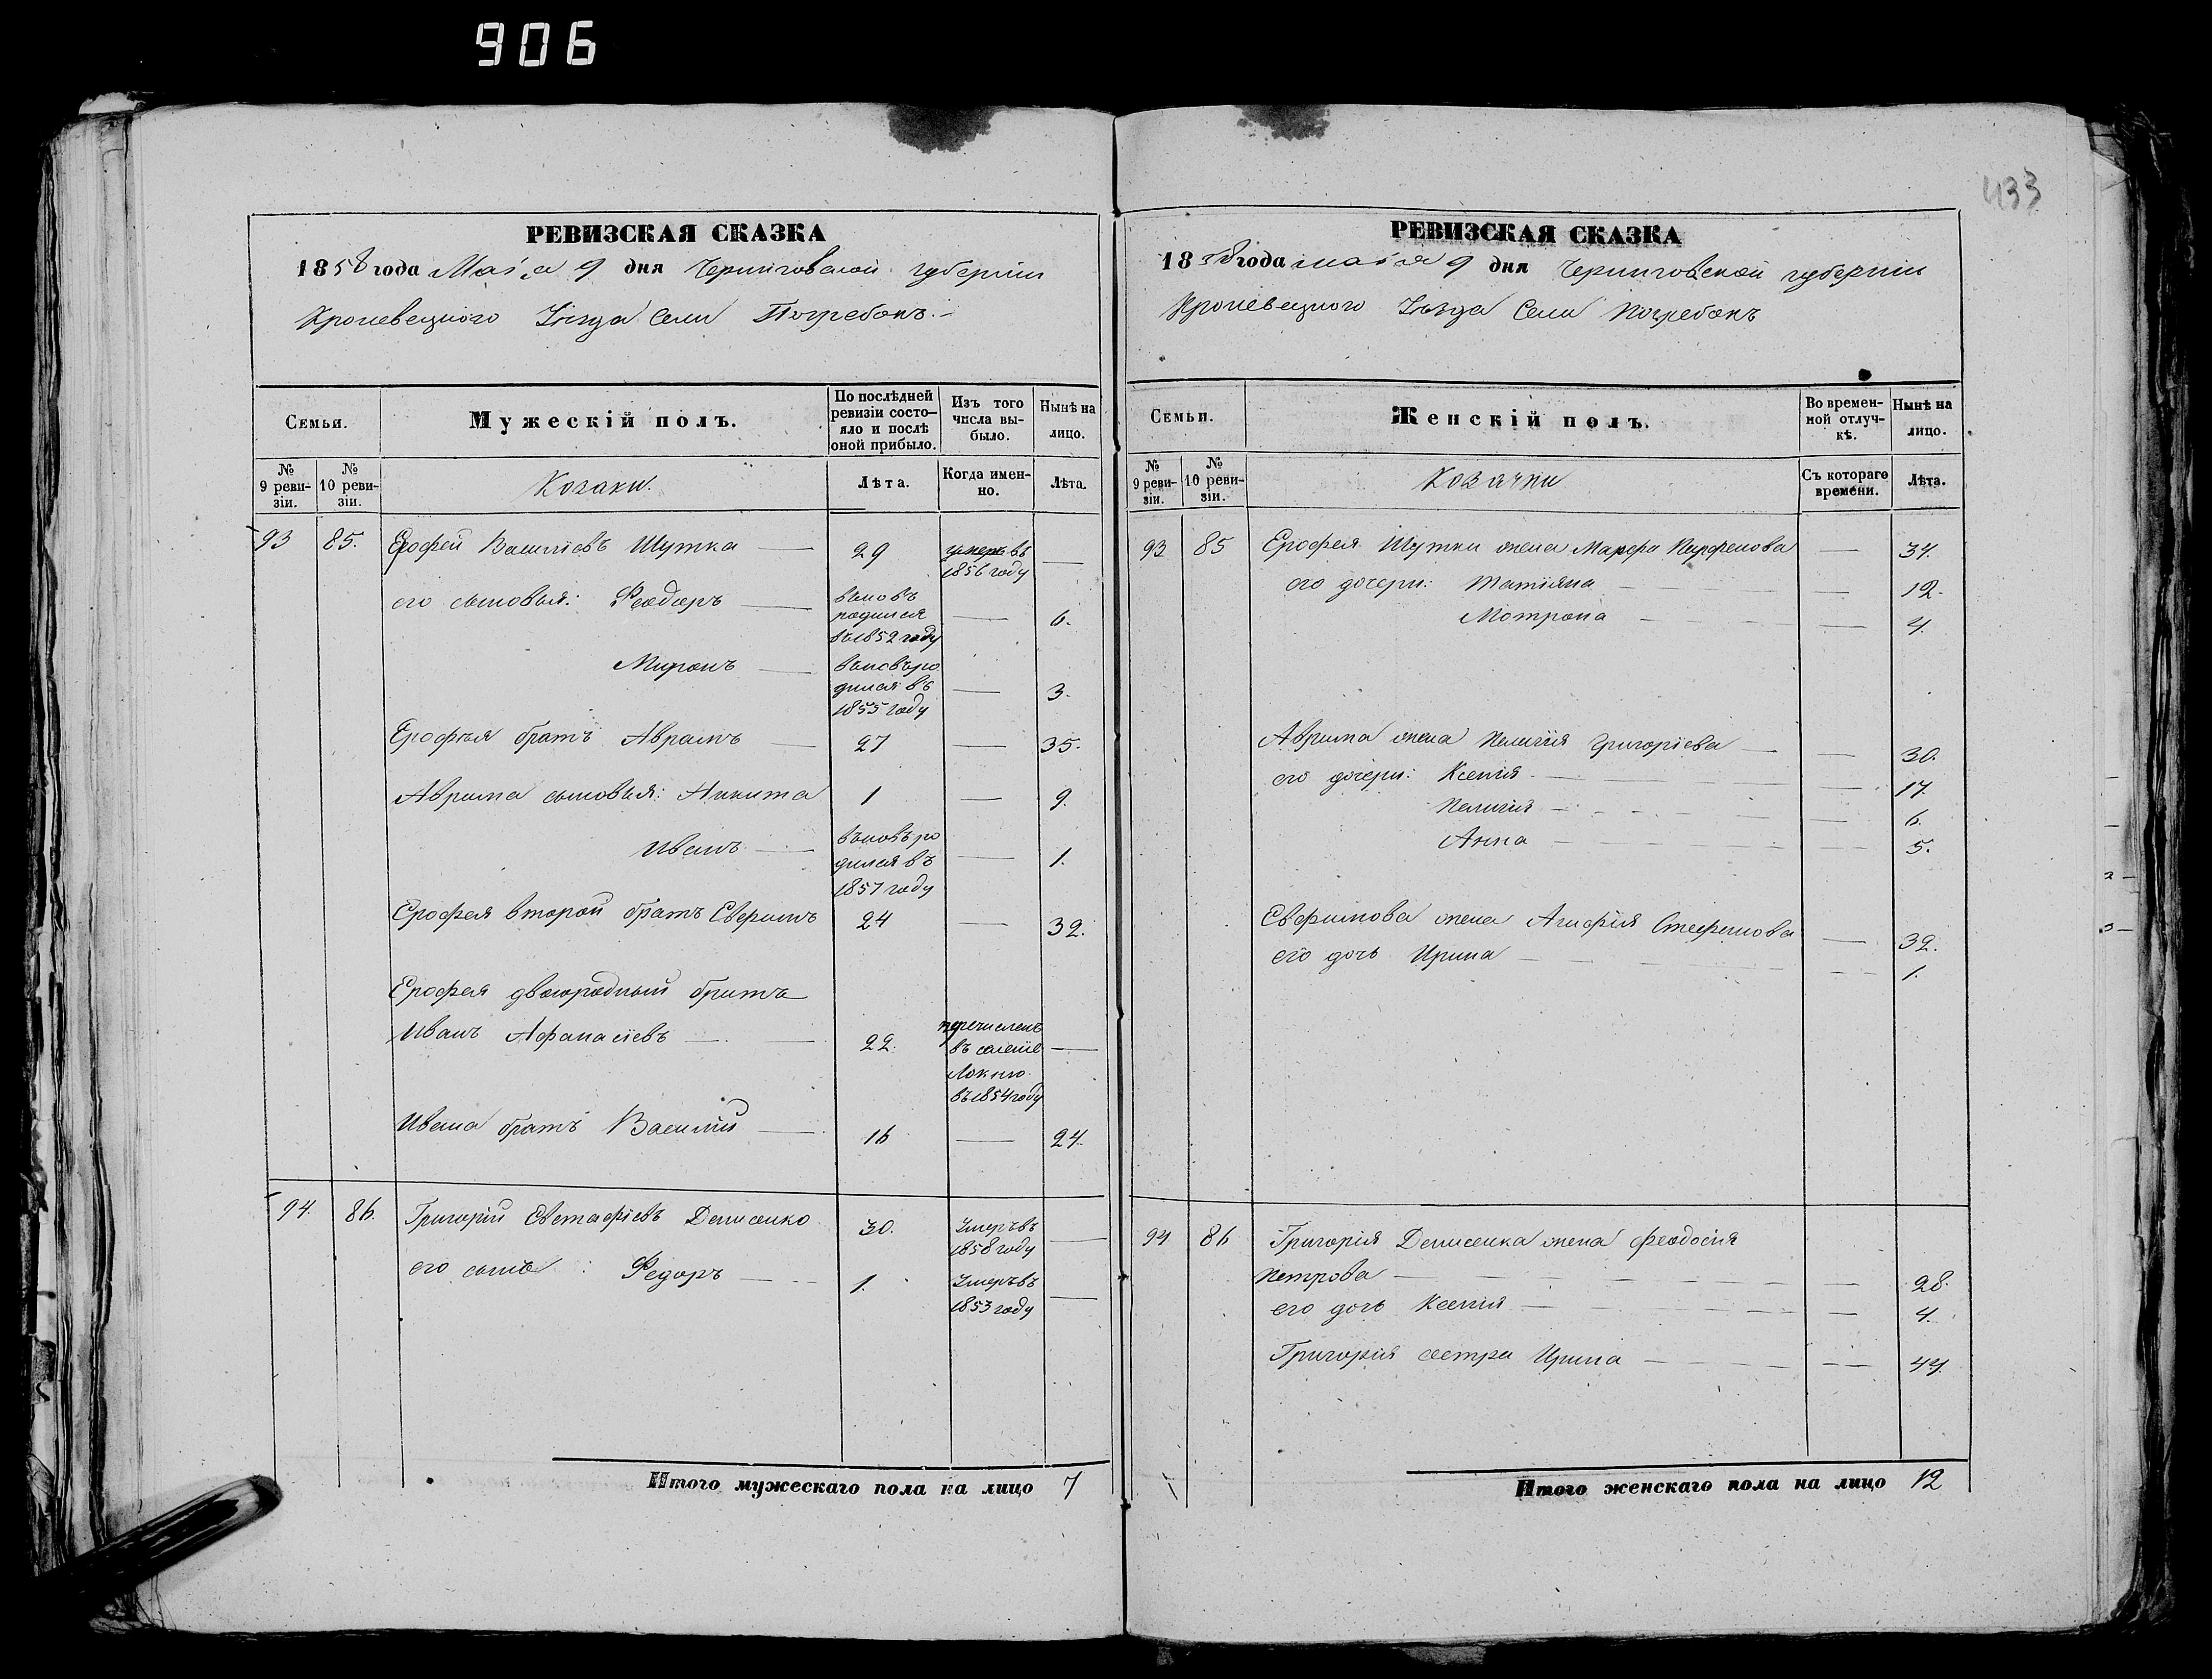 906
433
РЕВИЗСКАЯ СКАЗКА
1858 года Маія 9 дня Черниговской губерніи
Кролевецкого Уѣзда Села Погребокъ.
Семьи.
Мужескій полъ.
По послѣдней ревизіи состояло и послѣ оной прибыло.
Изъ того числа выбыло.
Нынѣ на лицо.
№ 9 ревизіи.
№ 10 ревизіи.
Козаки.
Лѣта.
Когда именно.
Лѣта.
93 85. Ерофей Василіевъ Шутка — 29 умеръ въ 1856 году —
его сыновья: Феодоръ — вновь родился въ 1852 году — 6.
Миронъ — вновь родился въ 1855 году — 3.
Ерофѣя братъ Аврамъ — 27 — 35.
Аврама сыновья: Никита 1 — 9.
Иванъ — вновь родился въ 1857 году — 1.
Ерофея второй братъ Евфимъ 24 — 32.
Ерофея двоюродный братъ
Иванъ Афанасіевъ — 22. перечисленъ въ 1854 году —
Ивана братъ Василий — 16 — 24.
94. 86. Григорій Евстафіевъ Денисенко 30. Умеръ въ 1858 году —
его сынъ: Федоръ — 1. Умеръ въ 1853 году —
Итого мужескаго пола на лицо 7
РЕВИЗСКАЯ СКАЗКА
1858 года маія 9 дня Черниговской губерніи
Кролевецкого Уѣзда Села Погребокъ
Семьи.
Женскій полъ.
Во временной отлучкѣ.
Нынѣ на лицо.
№ 9 ревизіи.
№ 10 ревизіи.
Козачки
Съ котораго времени.
Лѣта.
93 85 Ерофея Шутки жена Марфа Парфенова — 34.
его дочери: Татіяна — 12.
Мотрона — 4.
Аврама жена Пелагія Григоріева — 30.
его дочери: Ксенія — 17.
Пелагія — 6.
Анна — 5.
Евфимова жена Агафія Стефанова — 32.
его дочь Ирина — 1.
94 86 Григорія Денисенка жена Феодосія
Петрова — 28.
его дочь Ксенія — 4.
Григорія сестра Ирина — 44.
Итого женскаго пола на лицо 12